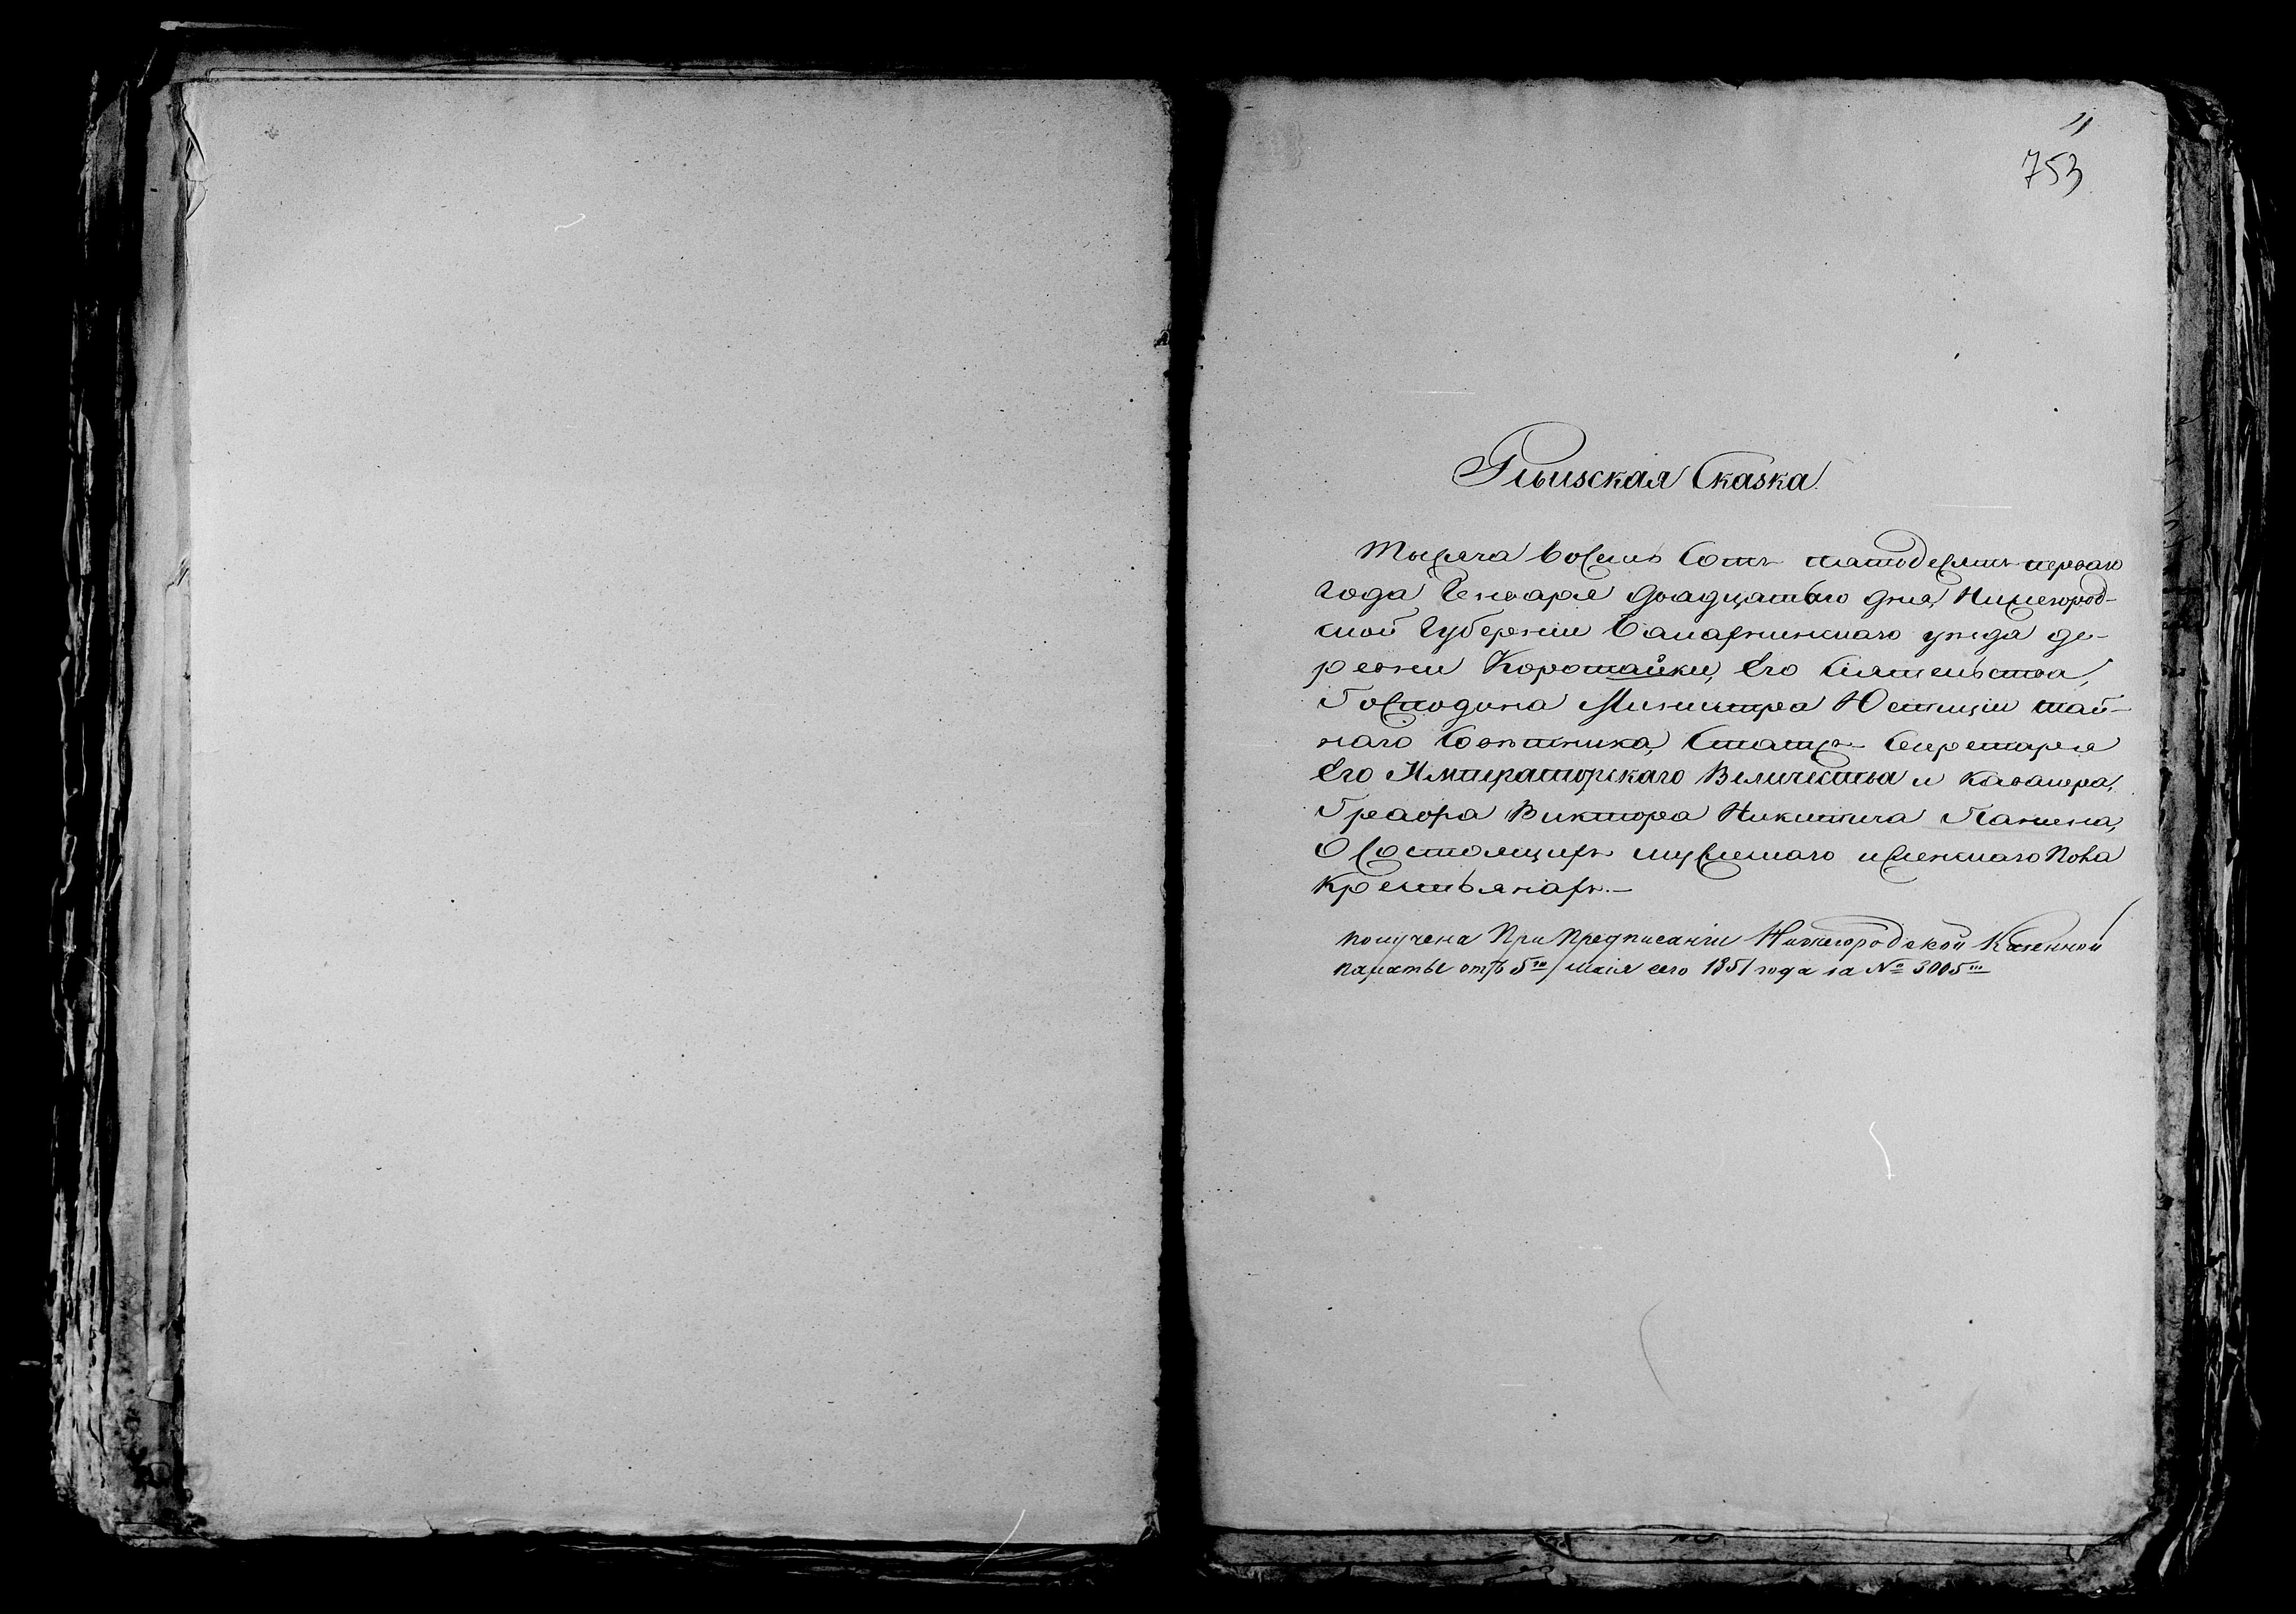 11
753
Ревизская Сказка
Тысяча восемь сотъ пятьдесятъ перваго
года Генваря двадцатаго дня, Нижегород-
ской Губерніи Балахнинскаго уѣзда де-
ревни Коротайки, Его Сіятельства,
Господина Министра Юстиціи тай-
наго Совѣтника, Статсъ-Секретаря
Его Императорскаго Величества и Кавалера,
Графа Виктора Никитича Панина,
О состоящихъ мужескаго и женскаго пола
крестьянахъ.—
получена При Предписаніи Нижегородской Казенной
палаты отъ 5го маія сего 1851 года за № 3005